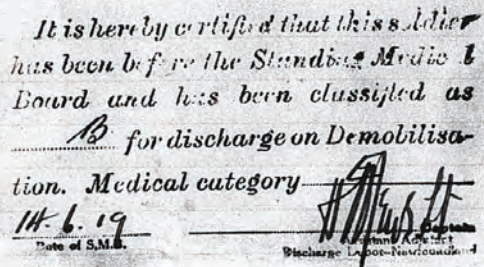 It is hereby certified that this soldier
has been before the Standing Medical
Board and has been classified as
B for discharge on Demobilisa-
tion. Medical category
14.6.19
Captain
Date of S.M.B. Assistant Adjutant
Discharge Depot-Newfoundland